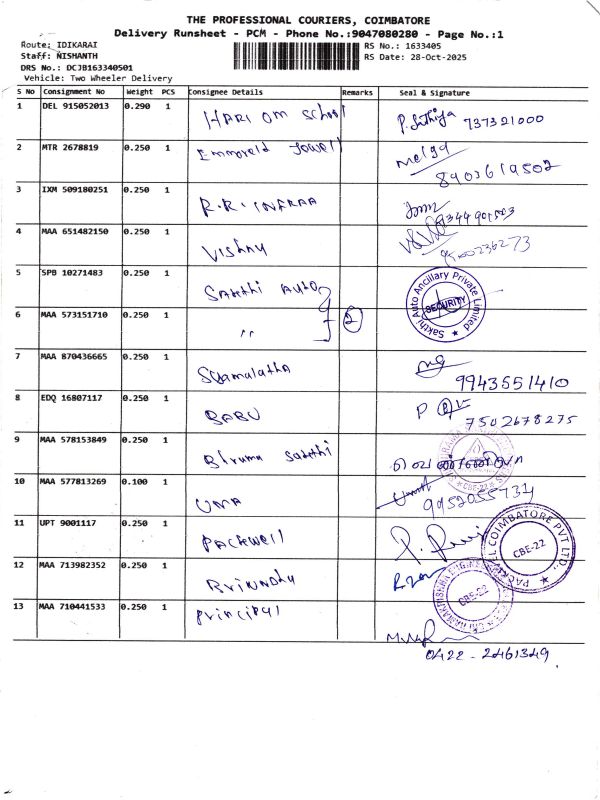 THE PROFESSIONAL COURIERS, COIMBATORE
Delivery Runsheet - PCM - Phone No.:9047080280 - Page No.:1
Route: IDIKARAI RS No.: 1633405
Staff: NISHANTH RS Date: 28-Oct-2025
DRS No.: DCJB163340501
Vehicle: Two Wheeler Delivery
S No Consignment No Weight PCS Consignee Details Remarks Seal & Signature
1 DEL 915052013 0.290 1 HARI OM School 737321000
2 MTR 2678819 0.250 1 Emmoreld Jowell 8903619502
3 IXM 509180251 0.250 1 R.R. INFRAA
4 MAA 651482150 0.250 1 Vishnu
5 SPB 10271483 0.250 1 Sakthi Auto Sakthi Auto Ancillary Private Limited SECURITY
6 MAA 573151710 0.250 1 " 2
7 MAA 870436665 0.250 1 Syamalatha 9943551410
8 EDQ 16807117 0.250 1 BABU 7502678275
9 MAA 578153849 0.250 1 Sakthi CBE-22
10 MAA 577813269 0.100 1 UMA 9952055731
11 UPT 9001117 0.250 1 Packwell PACKWEL COIMBATORE PVT LTD., CBE-22
12 MAA 713982352 0.250 1 CBE-22
13 MAA 710441533 0.250 1 Principal
0422 - 2461349